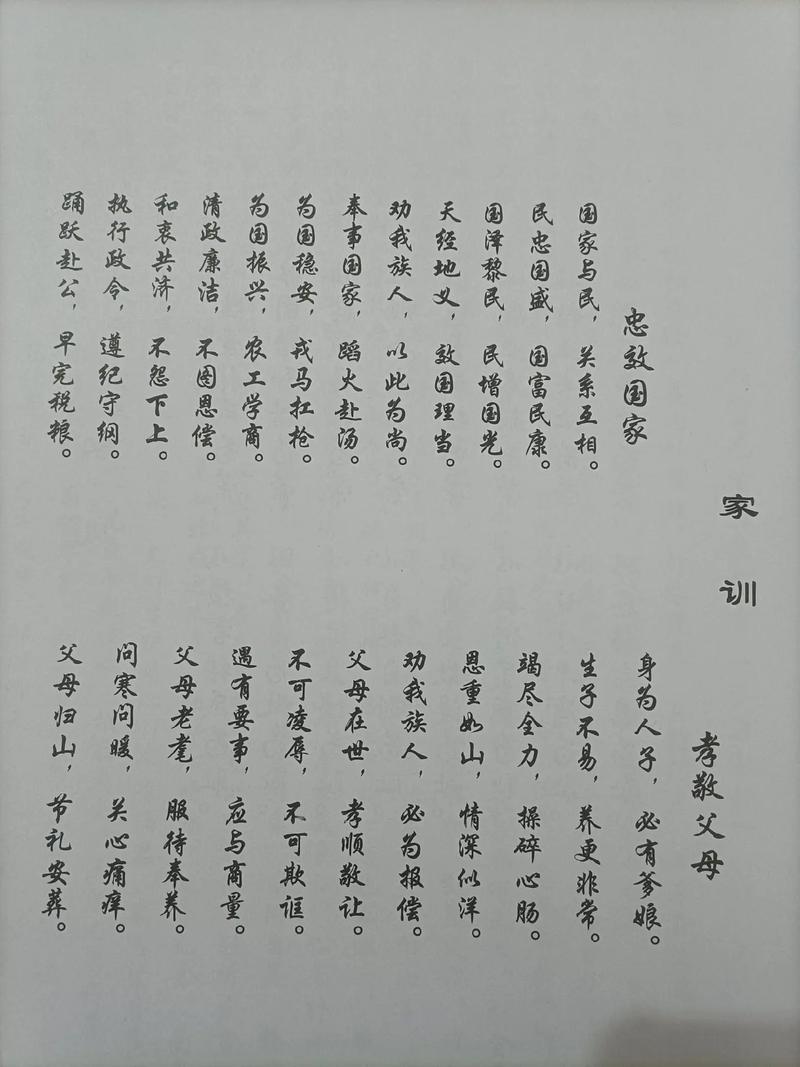 家训
忠效国家
国家与民，关系互相。
民忠国盛，国富民康。
国泽黎民，民增国光。
天经地义，效国理当。
劝我族人，以此为尚。
奉事国家，蹈火赴汤。
为国稳安，戎马扛枪。
为国振兴，农工学商。
清政廉洁，不图恩偿。
和衷共济，不怨下上。
执行政令，遵纪守纲。
踊跃赴公，早完税粮。
孝敬父母
身为人子，必有爹娘。
生子不易，养更非常。
竭尽全力，操碎心肠。
恩重如山，情深似洋。
劝我族人，必为报偿。
父母在世，孝顺敬让。
不可凌辱，不可欺诓。
遇有要事，应与商量。
父母老耄，服待奉养。
问寒问暖，关心痛痒。
父母归山，节礼安葬。